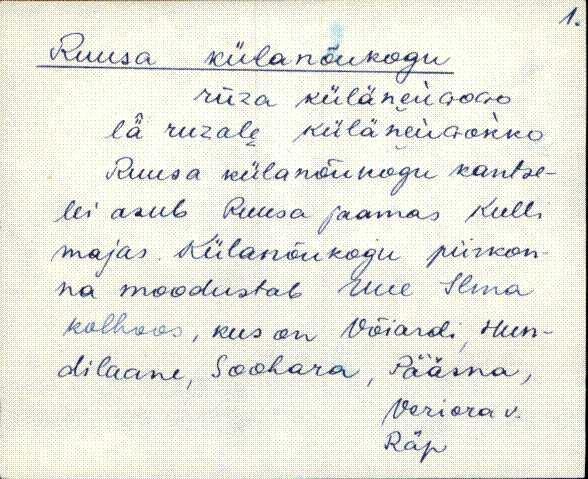 1.
Ruusa külanõukogu
rūza külänеùɢoɢo
lǟ ruzalę külänеùɢòkko
Ruusa külanõukogu kantse-
lei asub Ruusa jaamas Kulli
majas. Külanõukogu piirkon-
na moodustab Uue Ilma
kolhoos, kus on Võiardi, Hun-
dilaane, Soohara, Pääsna,
Veriora v.
Räp